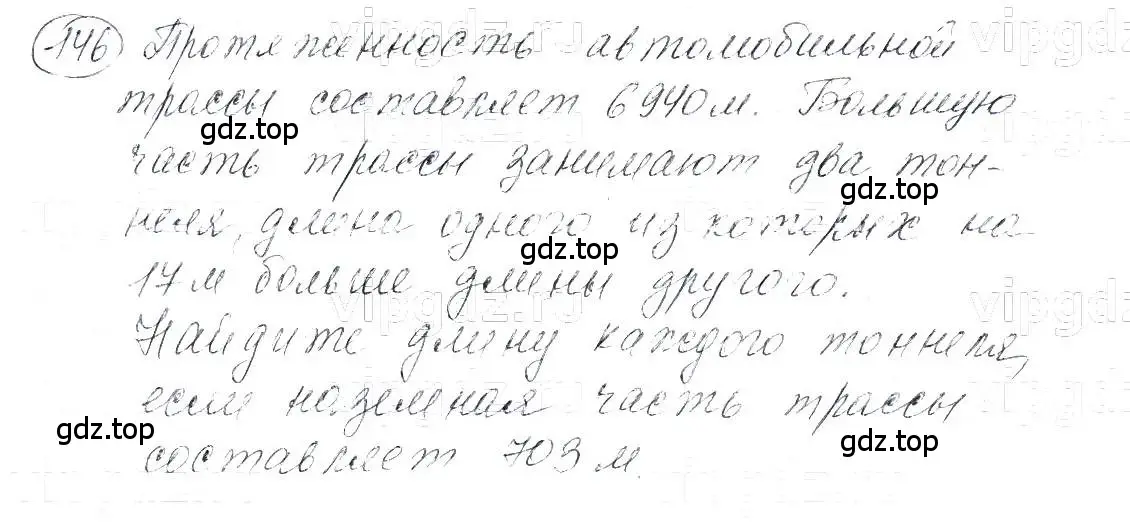 146 Протяженность автомобильной
трассы составляет 6940м. Большую
часть трассы занимают два тон-
неля, длина одного из которых на
17м больше длины другого.
Найдите длину каждого тоннеля,
если наземная часть трассы
составляет 703м.
gdz.top
gdz.top
gdz.top
gdz.top
gdz.top
gdz.top
vipgdz.ru
vipgdz
vipgdz.ru
vipgdz